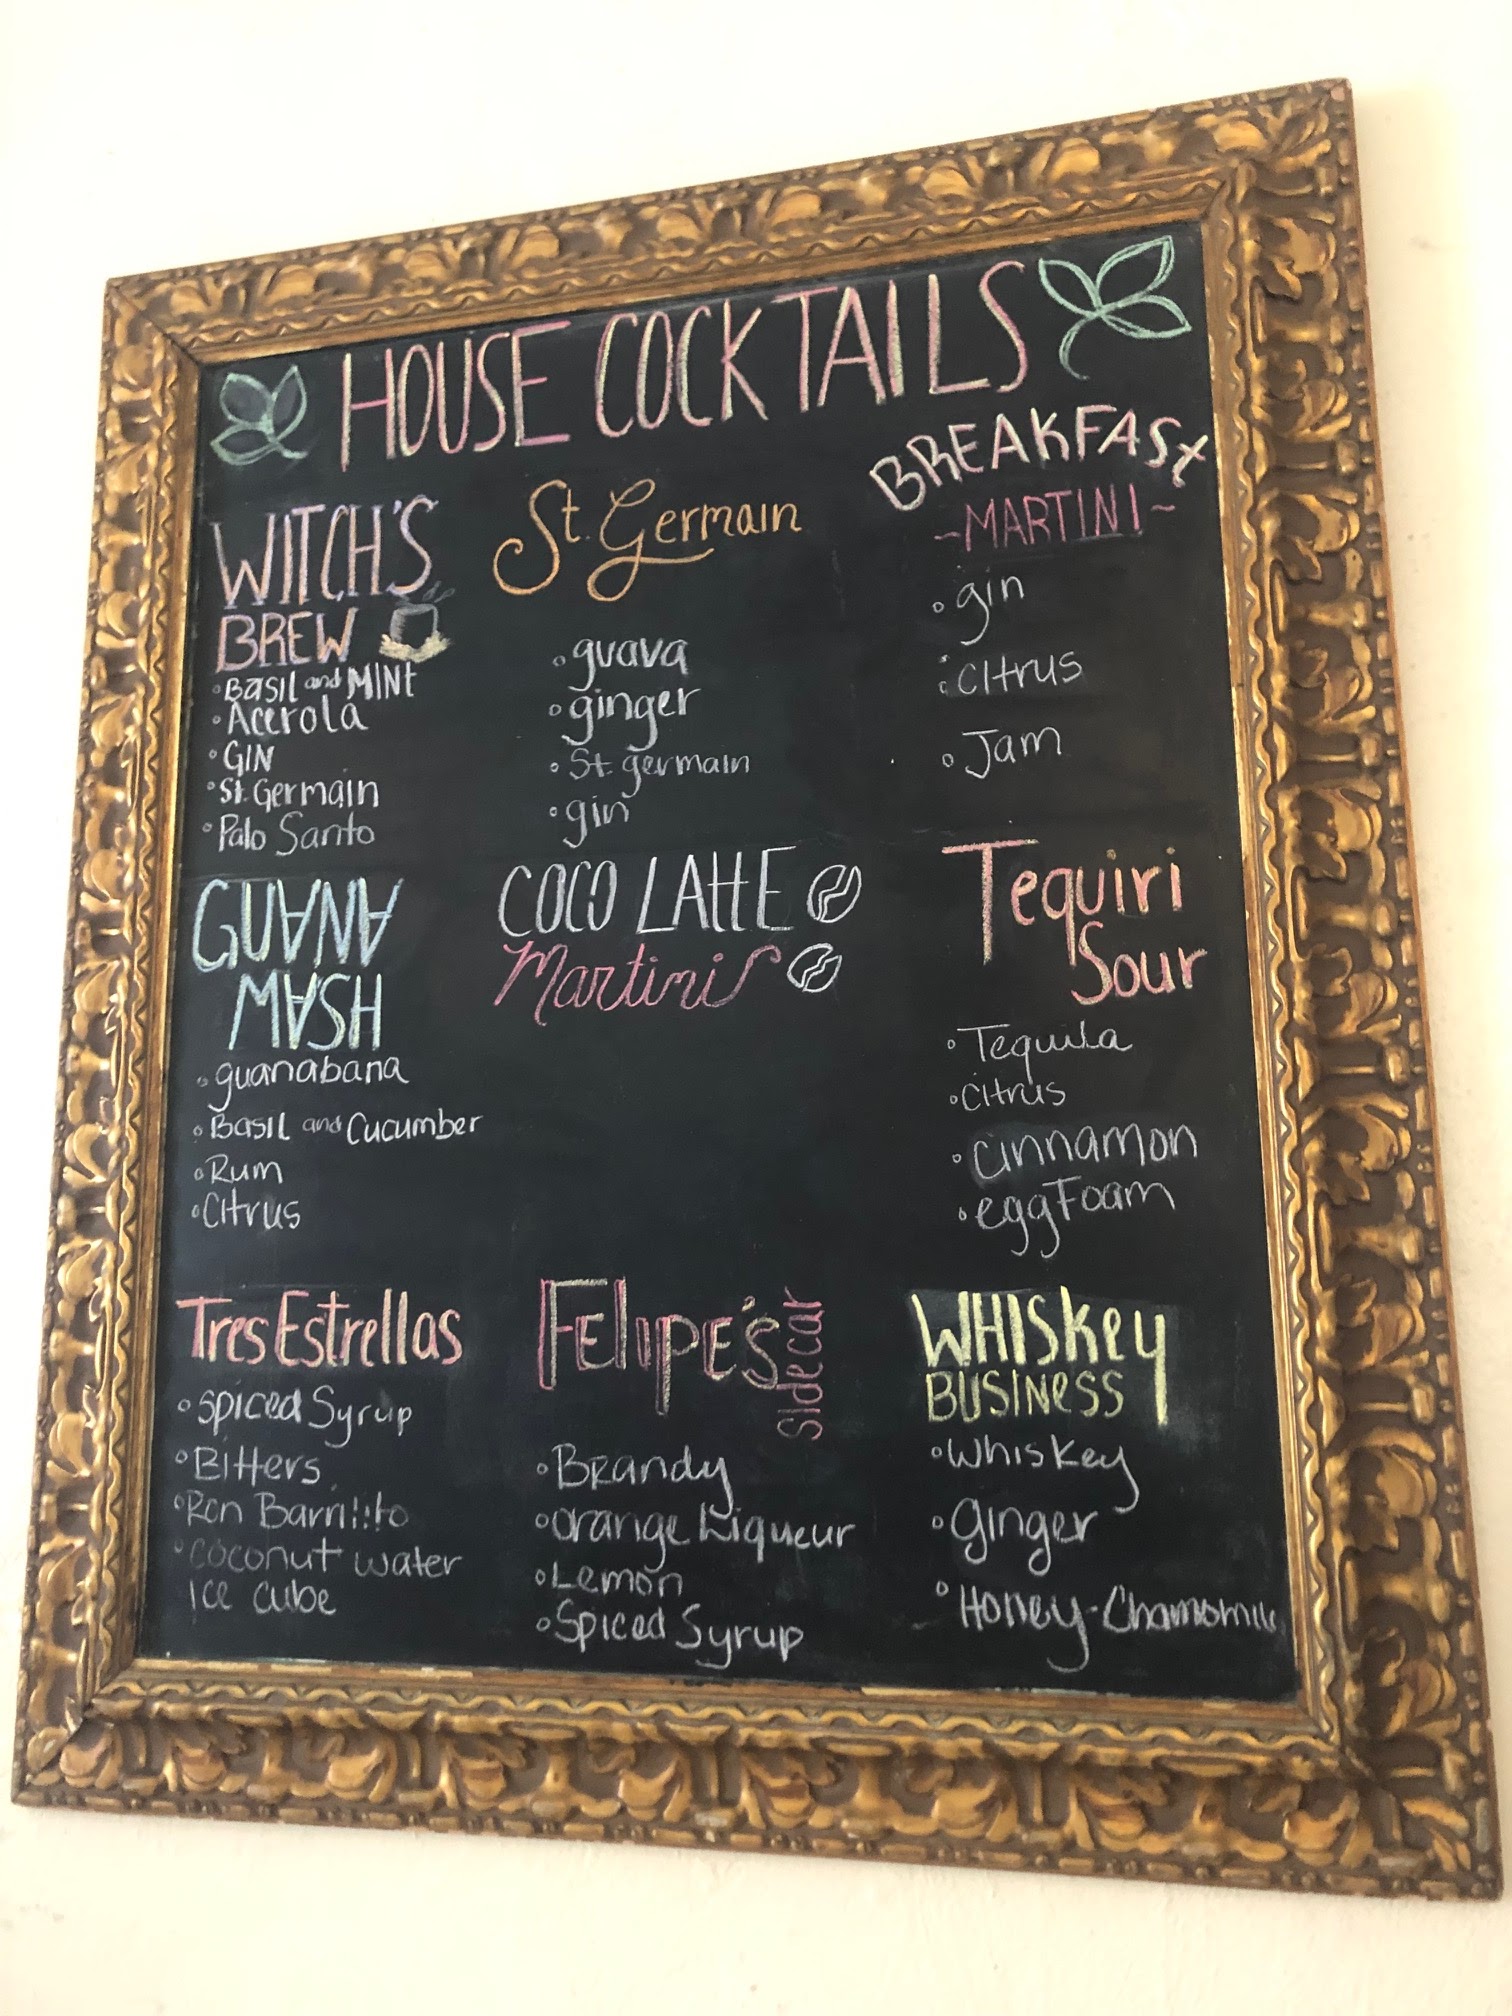 HOUSE COCKTAILS
WITCH'S
BREW
Basil and MINt
Acerola
GIN
St. Germain
Palo Santo
St. Germain
guava
ginger
St. germain
gin
BREAKFASt
~MARTINI~
gin
citrus
Jam
GUANA
MASH
guanabana
Basil and Cucumber
Rum
Citrus
COCO LAttE
Martini
Tequiri
Sour
Tequila
citrus
cinnamon
eggFoam
Tres Estrellas
Spiced Syrup
Bitters
Ron Barrilito
coconut water
Ice cube
FELIPE'S
Sidecar
Brandy
orange Liqueur
Lemon
Spiced Syrup
WHISkey
BUSINess
Whiskey
Ginger
Honey-Chamomile